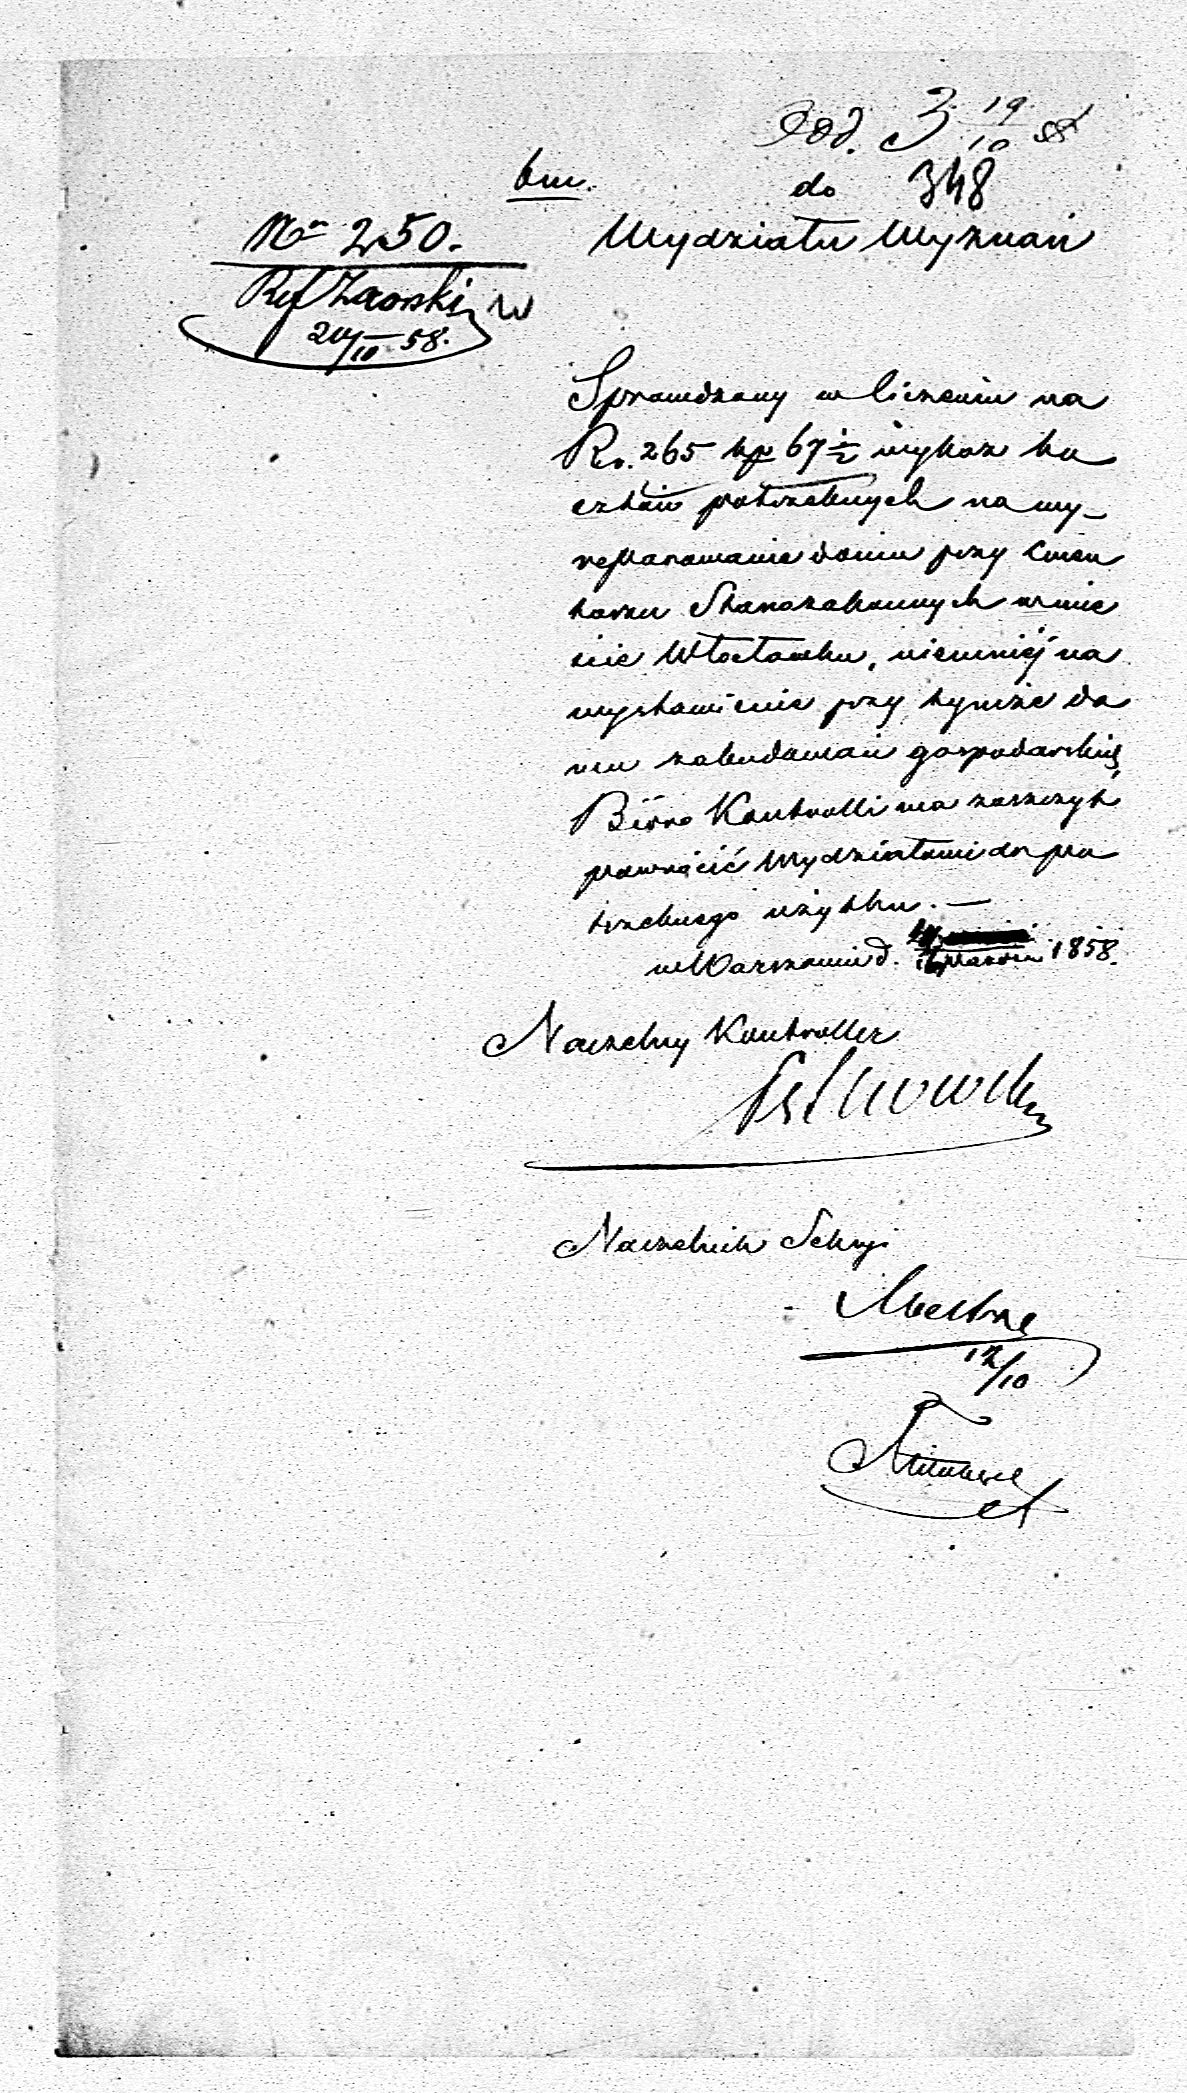 Pod. 3 19/10 58
bm.
do 348
Nr 250.
Wydziału Wyznań
Ref Zaorski
20/10 58.
Sprawdzony w liczeniu na
Rs. 265 kp 67 1/2 wykaz ko
sztów potrzebnych na wy-
reparowanie domu przy Cmen
tarzu Starozakonnych w mie
ście Włocławku, niemniéj na
wystawienie przy tymże do
mu zabudowań gospodarskich,
Bióro Kontrolli ma zaszczyt
powrócić Wydziałowi do po
trzebnego użytku. —
w Warszawie d. 1858.
Naczelny Kontroller
Naczelnik Sekcyi
12/10